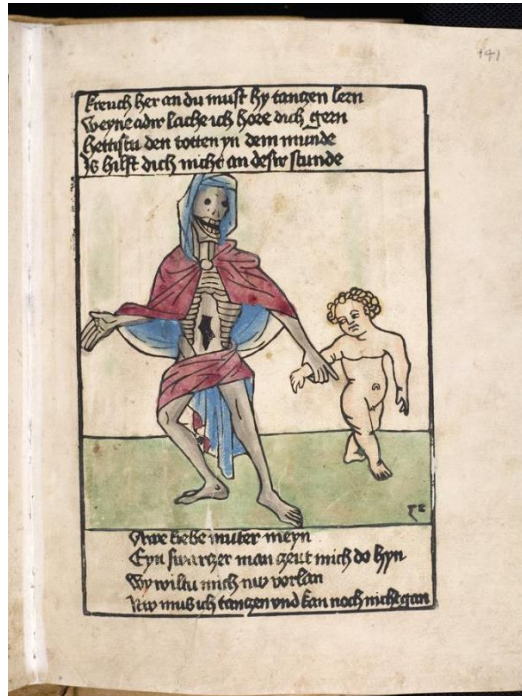 141
Kreuch her an du must hy tanczen lern
Weyne adir lache ich hore dich gern
Hettistu den totten yn dem munde
Is hilft dich nicht an desir stunde
Owe liebe muter meyn
Eyn swarczer man czeut mich do hyn
Wy wiltu mich nw vorlan
Nw mus ich tanczen vnd kan noch nicht gan